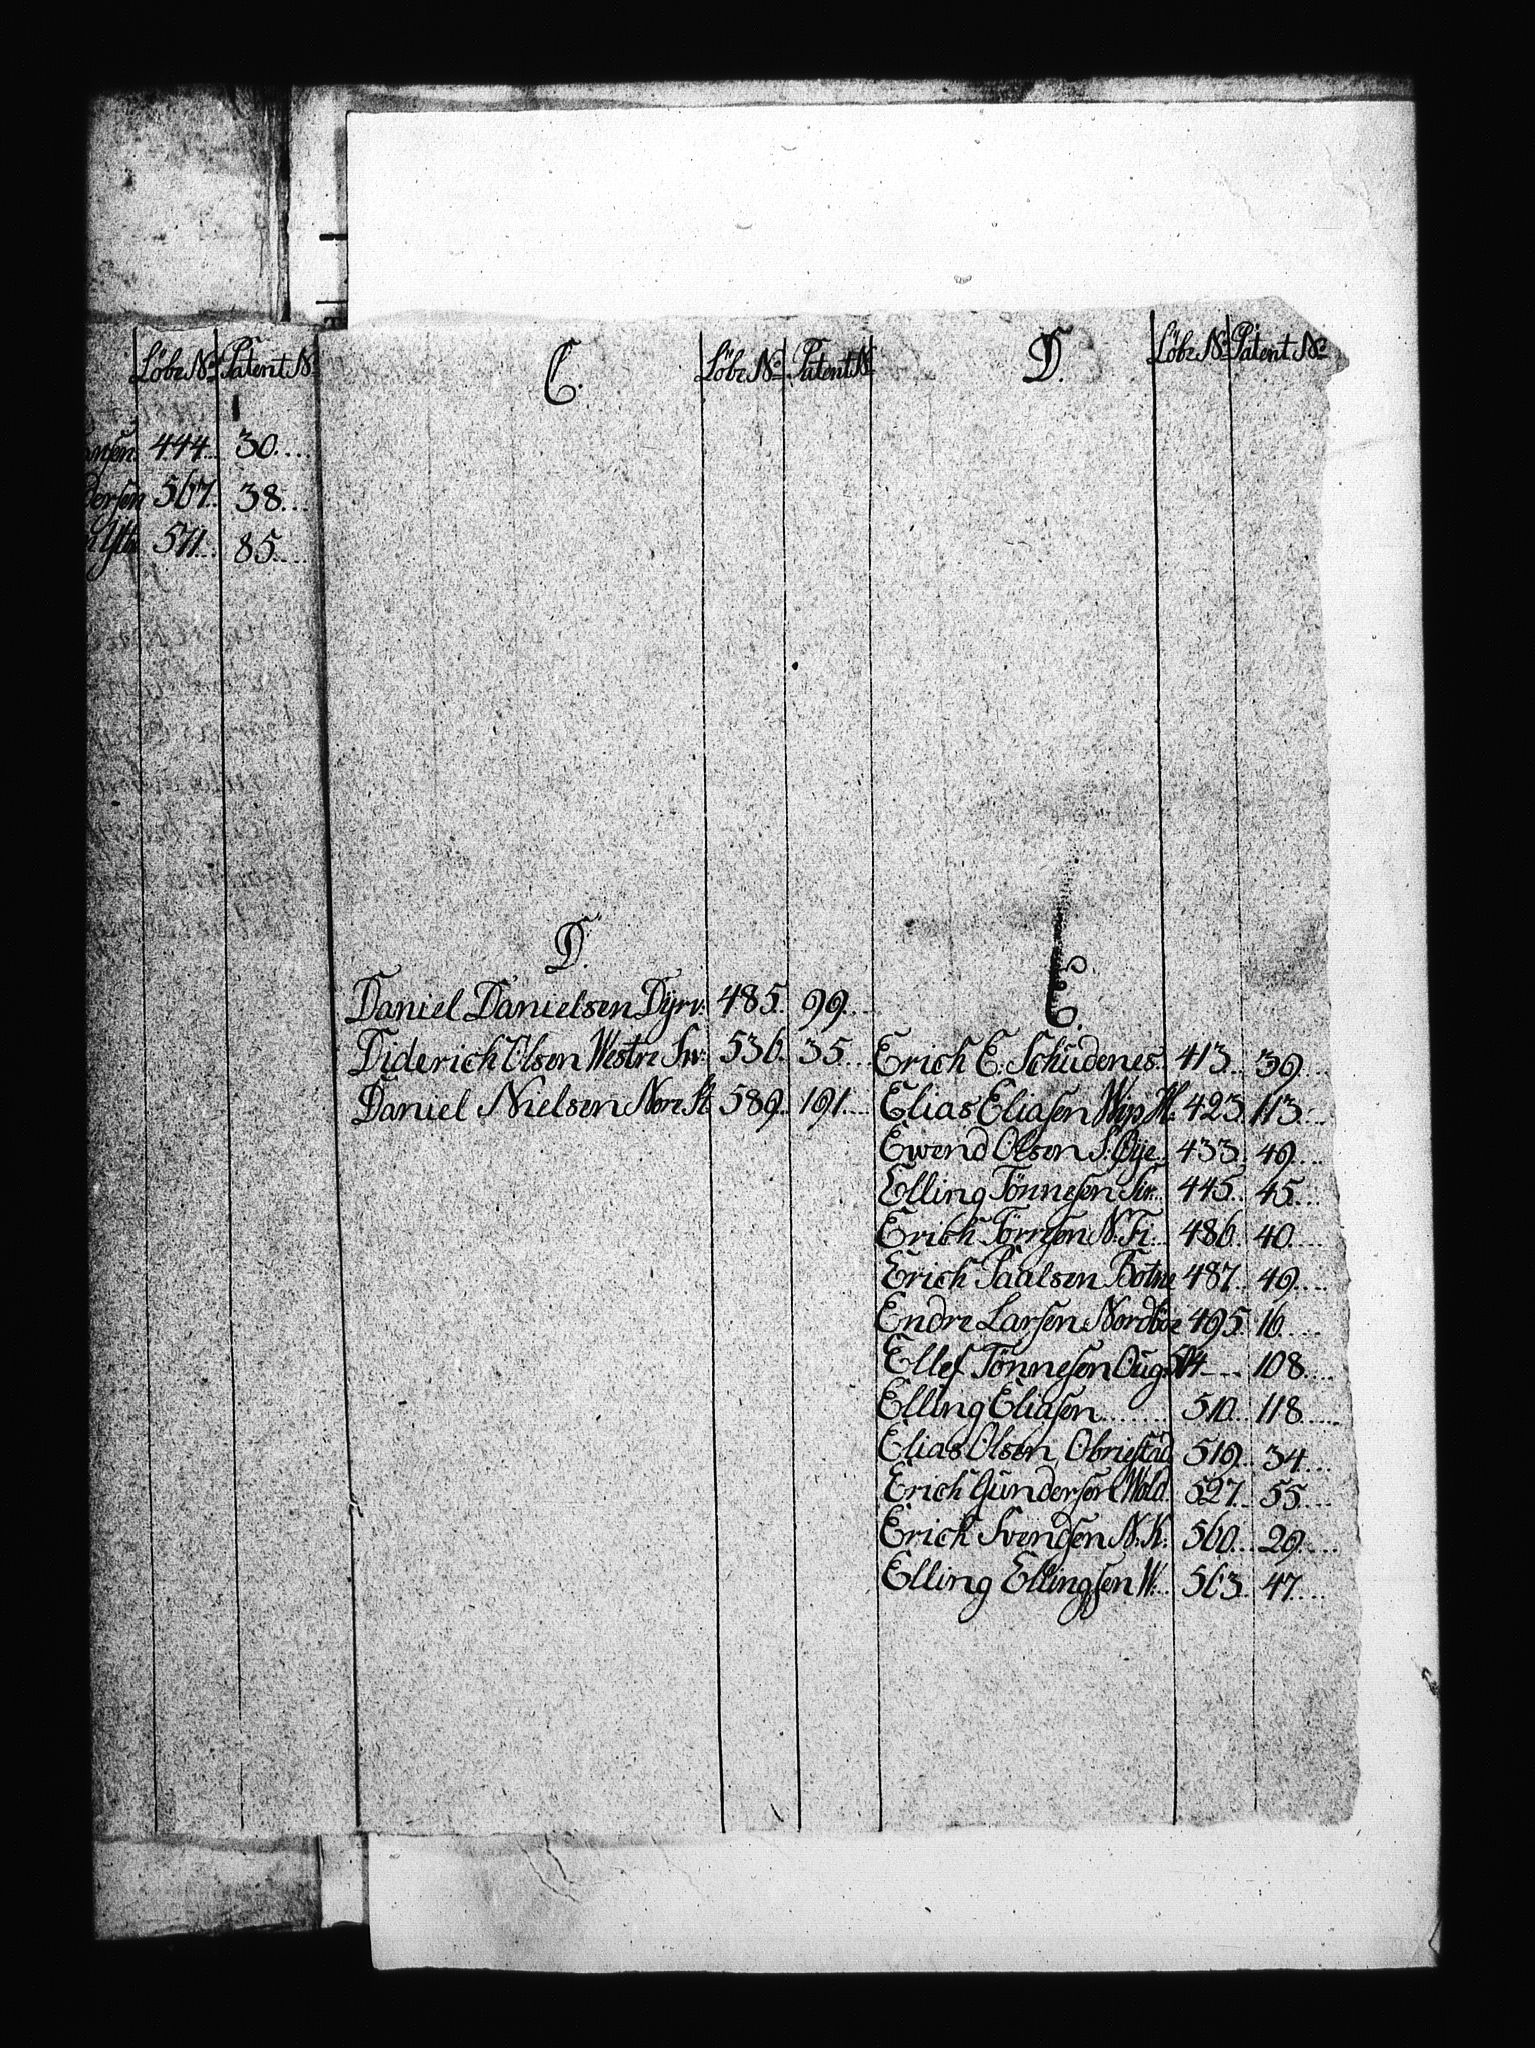 Löbe No Patent N
444 30
567 38
571 85
C. Löbe No Patent No
D.
Daniel Danielsen Dyrv: 485 99
Diderich Olsen Westre Sv: 536 35
Daniel Nielsen Nore St 589 191
D. Löbe No Patent No
E.
Erich E. Schudenes 413 39
Elias Eliasen 423 113
Ewend Olsen S. Øye 433 49
Elling Tönnesen Sir 445 45
Erich Törresen N. Ti 486 40
Erich Paalsen Botne 487 49
Endre Larsen Nordböe 495 16
Ellef Tönnesen Oug 504 108
Elling Eliasen 510 118
Elias Olsen Obriestad 519 34
Erich Gundersen Wold 527 55
Erich Svendsen N. K. 560 29
Elling Ellingsen W. 563 47